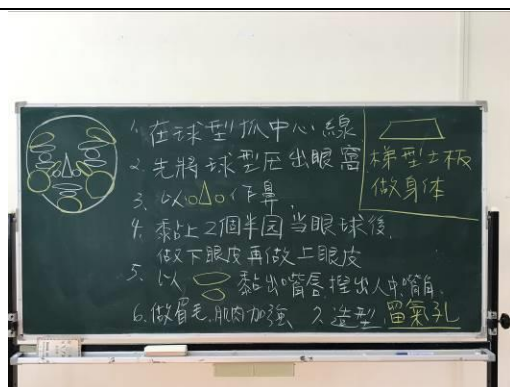 1. 在球型抓中心線
2. 先將球型压出眼窩
3. 以o△o作鼻
4. 黏上2個半园当眼球後,
做下眼皮再做上眼皮
5. 以 黏出嘴唇、捏出人中嘴角.
6. 做眉毛.肌肉加強、 造型.留氣孔
梯型土板
做身体